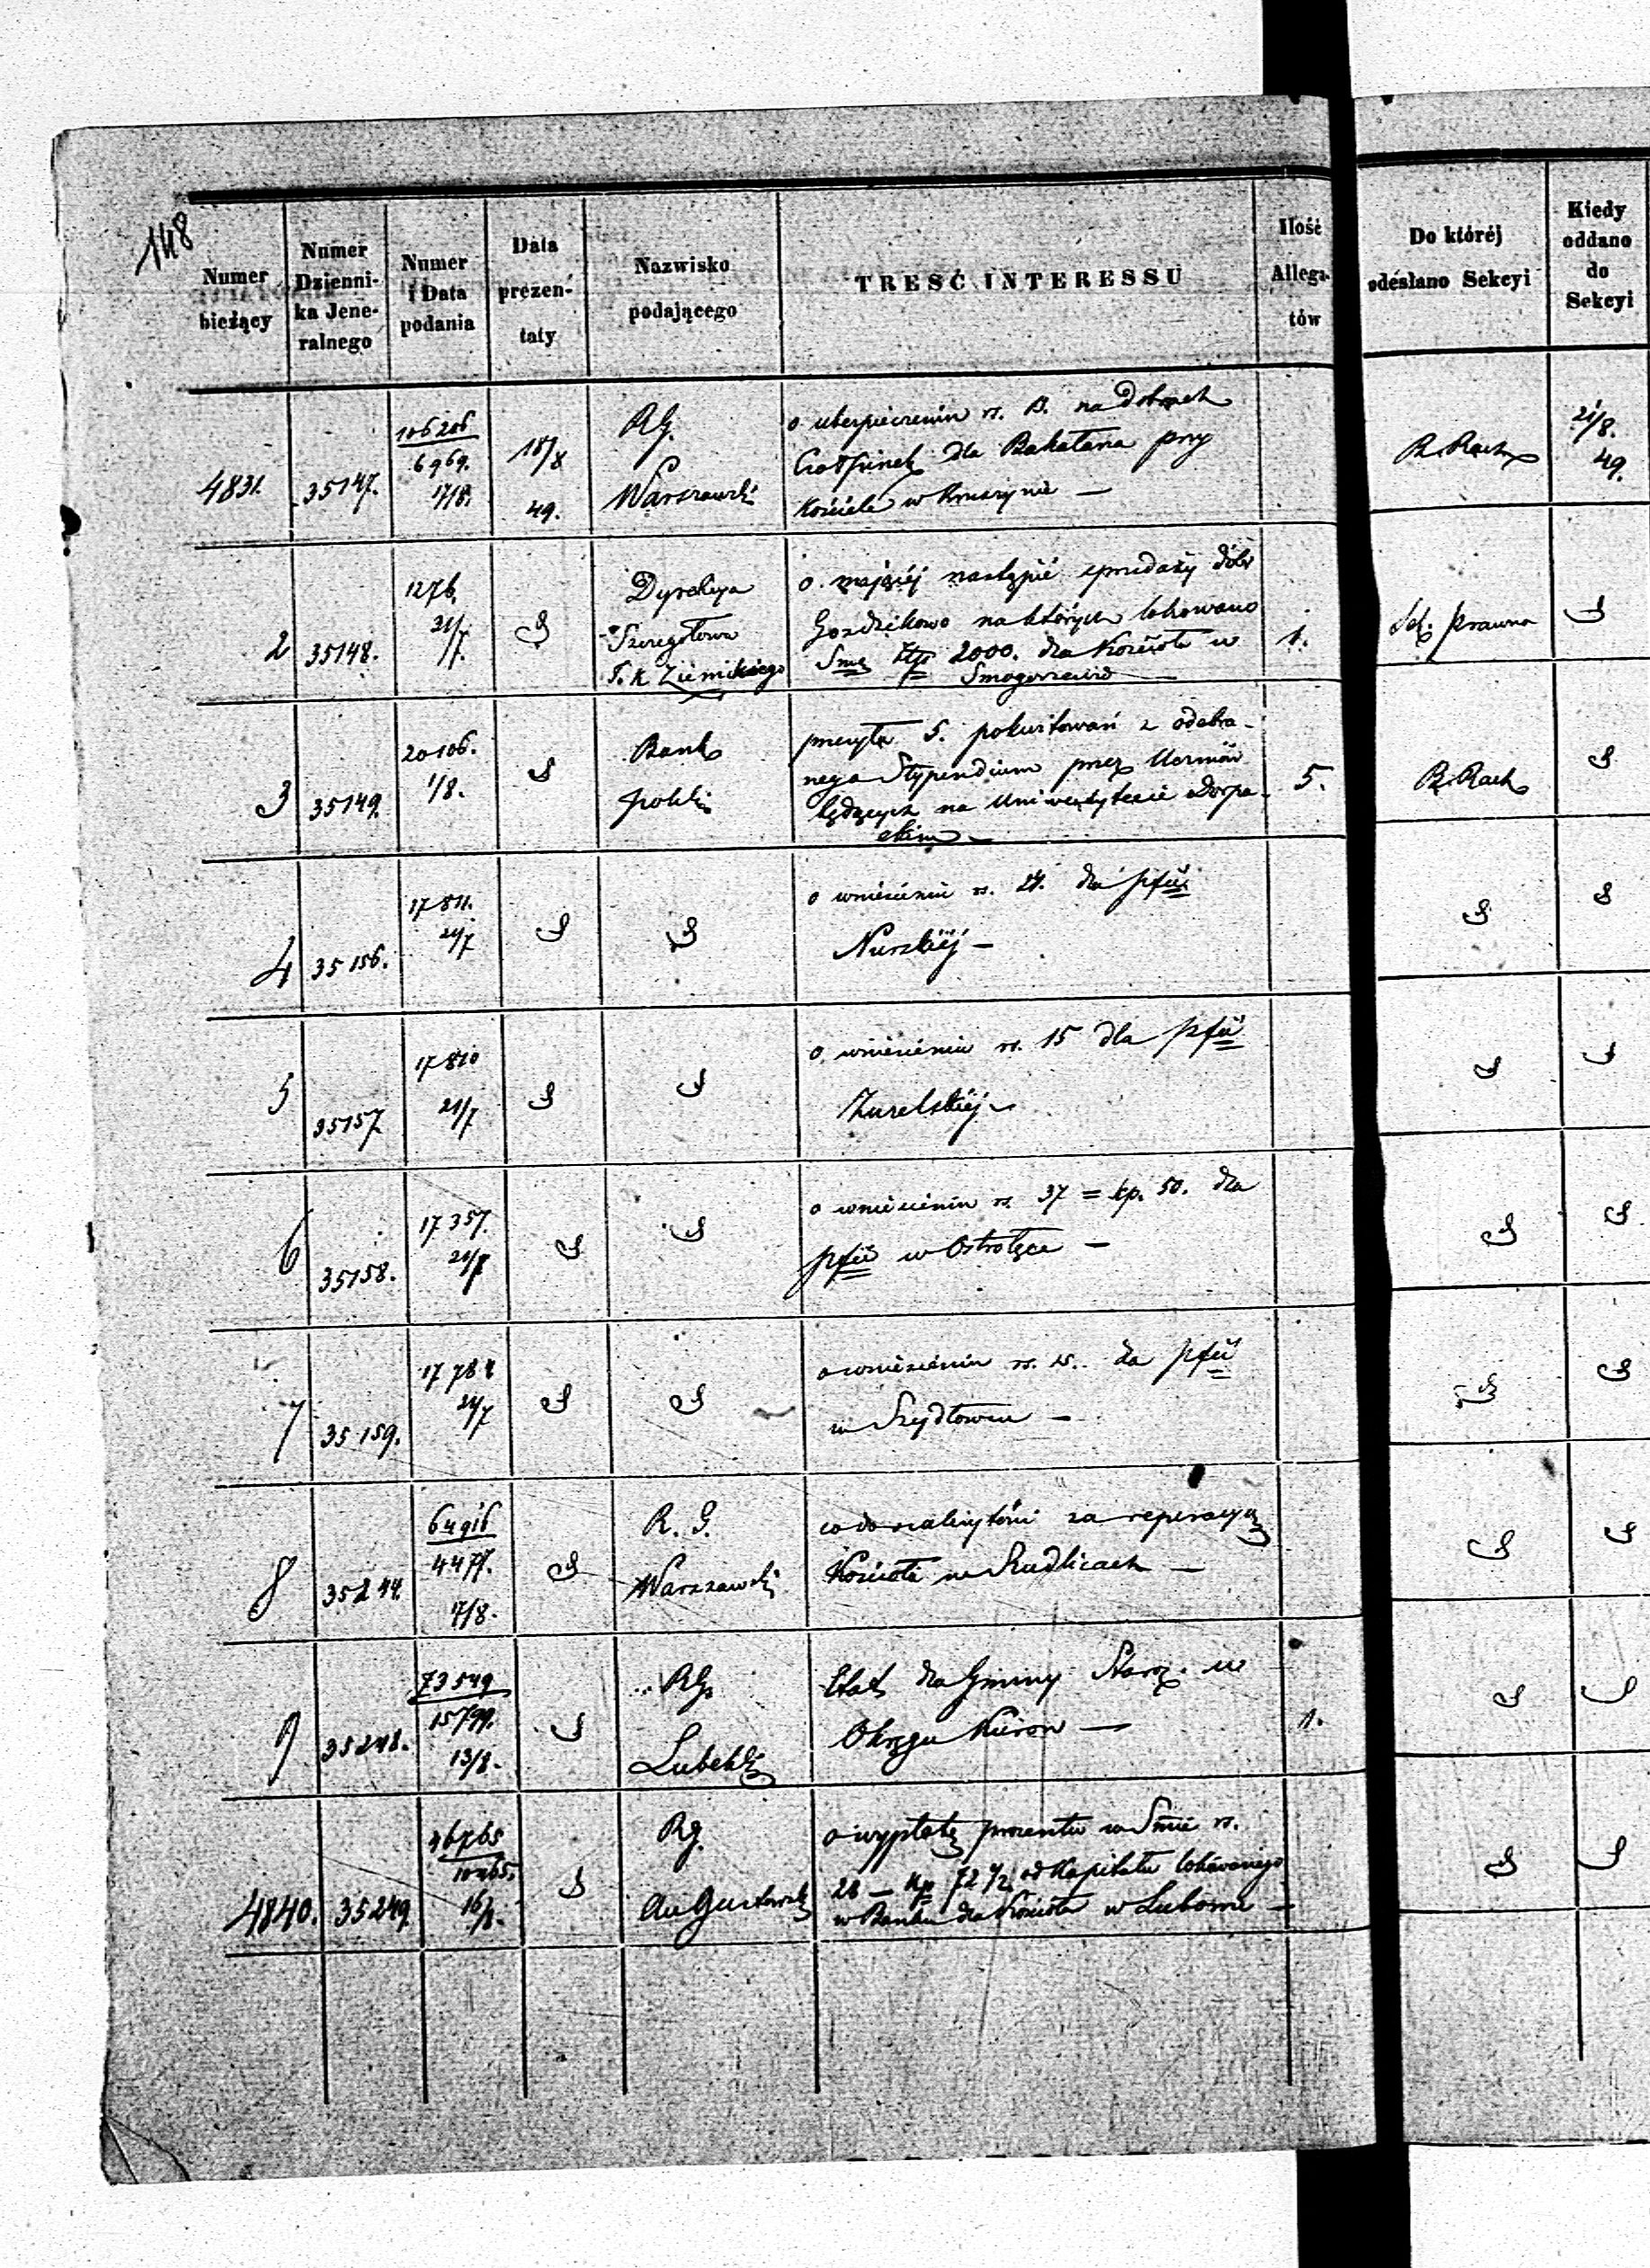 148
Numer bieżący
Numer Dzienni- ka Jene- ralnego
Numer i Data podania
Data prezen- taty
Nazwisko podającego
TREŚĆ INTERESSU
Ilość Allega- tów
Do któréj odesłano Sekcyi
Kiedy oddano do Sekcyi
4831. 35147. 106206 6969. 17/8. 18/8 49.
RG. Warszawski
o ubezpieczeniu rs. na Dobrach
dla Bakałarza przy
Kościele w Kruszynie —
R. Rach 21/8. 49.
2 35148. 1276. 21/7.
Dyrekcya
Szczegółowa
T. K. Ziemskiego
o mającéj nastąpić sprzedaży dóbr
Gozdzikowo na których lokowano
Smę złp 2000. dla Kościoła w
Smogorzewie
1.
Sek. prawna
3 35149. 20106. 1/8.
Bank
polski
przesyła 5. pokwitowań z odebra-
nego Stypendium przez Uczniów
będących na Uniwersytecie Dorpa-
ckim —
5.
R. Rach
4 35156. 17811. 21/7
o wniesieniu rs. dla pfii
Nurskiéj —
5 35157 17810 21/7
o wniesieniu rs. 15 dla pfii
Zuzelskiéj —
6 35158. 17357. 21/7
o wniesieniu rs. 37 = kp. 50. dla
pfii w Ostrołęce —
7 35159. 17784 21/7
o wniesieniu rs. 15. dla pfii
w Szydłowcu —
8 35244. 64916 4477. 17/8.
R. G.
Warszawski
za reperacyą
Kościoła w Rudlicach —
9 35248. 73549 15799. 13/8.
RG.
Lubelski
Etat dla Gminy Staroz. w
Okręgu Kuron —
1.
4840. 35249 46765 10265. 16/8.
RG.
Augustowski
o wypłatę procentu w Smie rs.
28 — kp 72 1/2. od Kapitału lokowanego
w Banku dla Kościoła w Lubowie —